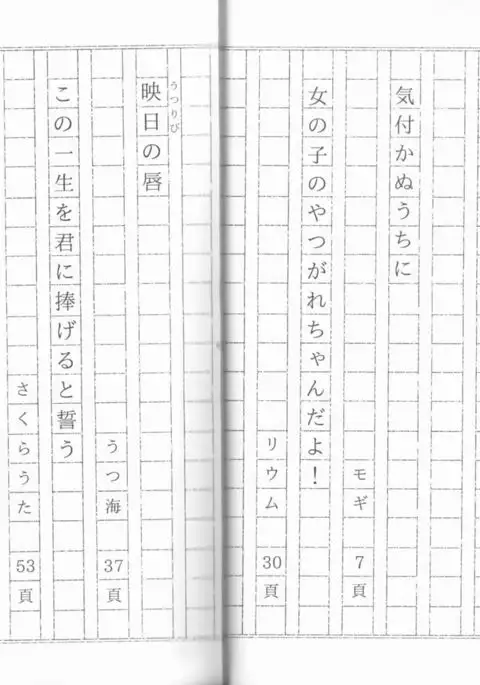 気付かぬうちに
モギ 7頁
女の子のやつがれちゃんだよ！
リウム 30頁
映日の唇
うつりび
うつ海 37頁
この一生を君に捧げると誓う
さくらうた 53頁